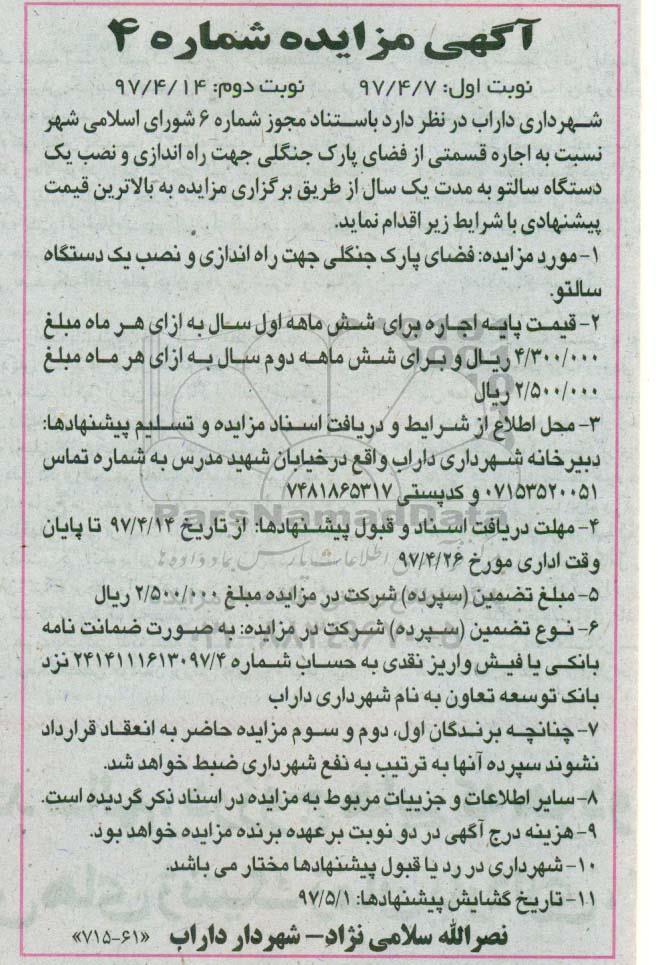 آگهی مزایده شماره ۴
نوبت اول: ۹۷/۴/۷ نوبت دوم: ۹۷/۴/۱۴
شهرداری داراب در نظر دارد باستناد مجوز شماره ۶ شورای اسلامی شهر
نسبت به اجاره قسمتی از فضای پارک جنگلی جهت راه اندازی و نصب یک
دستگاه سالتو به مدت یک سال از طریق برگزاری مزایده به بالاترین قیمت
پیشنهادی با شرایط زیر اقدام نماید.
۱- مورد مزایده: فضای پارک جنگلی جهت راه اندازی و نصب یک دستگاه
سالتو.
۲- قیمت پایه اجاره برای شش ماهه اول سال به ازای هر ماه مبلغ
۴/۳۰۰/۰۰۰ ریال و برای شش ماهه دوم سال به ازای هر ماه مبلغ
۲/۵۰۰/۰۰۰ ریال
۳- محل اطلاع از شرایط و دریافت اسناد مزایده و تسلیم پیشنهادها:
دبیرخانه شهرداری داراب واقع درخیابان شهید مدرس به شماره تماس
۰۷۱۵۳۵۲۰۰۵۱ و کدپستی ۷۴۸۱۸۶۵۳۱۷
ParsNamadData
۴- مهلت دریافت اسناد و قبول پیشنهادها: از تاریخ ۹۷/۴/۱۴ تا پایان
وقت اداری مورخ ۹۷/۴/۲۶
۵- مبلغ تضمین (سپرده) شرکت در مزایده مبلغ ۲/۵۰۰/۰۰۰ ریال
۶- نوع تضمین (سپرده) شرکت در مزایده: به صورت ضمانت نامه
بانکی یا فیش واریز نقدی به حساب شماره ۲۴۱۴۱۱۱۶۱۳۰۹۷/۴ نزد
بانک توسعه تعاون به نام شهرداری داراب
۷- چنانچه برندگان اول، دوم و سوم مزایده حاضر به انعقاد قرارداد
نشوند سپرده آنها به ترتیب به نفع شهرداری ضبط خواهد شد.
۸- سایر اطلاعات و جزییات مربوط به مزایده در اسناد ذکر گردیده است.
۹- هزینه درج آگهی در دو نوبت برعهده برنده مزایده خواهد بود.
۱۰- شهرداری در رد یا قبول پیشنهادها مختار می باشد.
۱۱- تاریخ گشایش پیشنهادها: ۹۷/۵/۱
نصرالله سلامی نژاد- شهردار داراب «۷۱۵-۶۱»